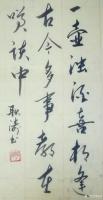 一壶浊酒喜相逢
古今多事都在
笑谈中
耿涛书